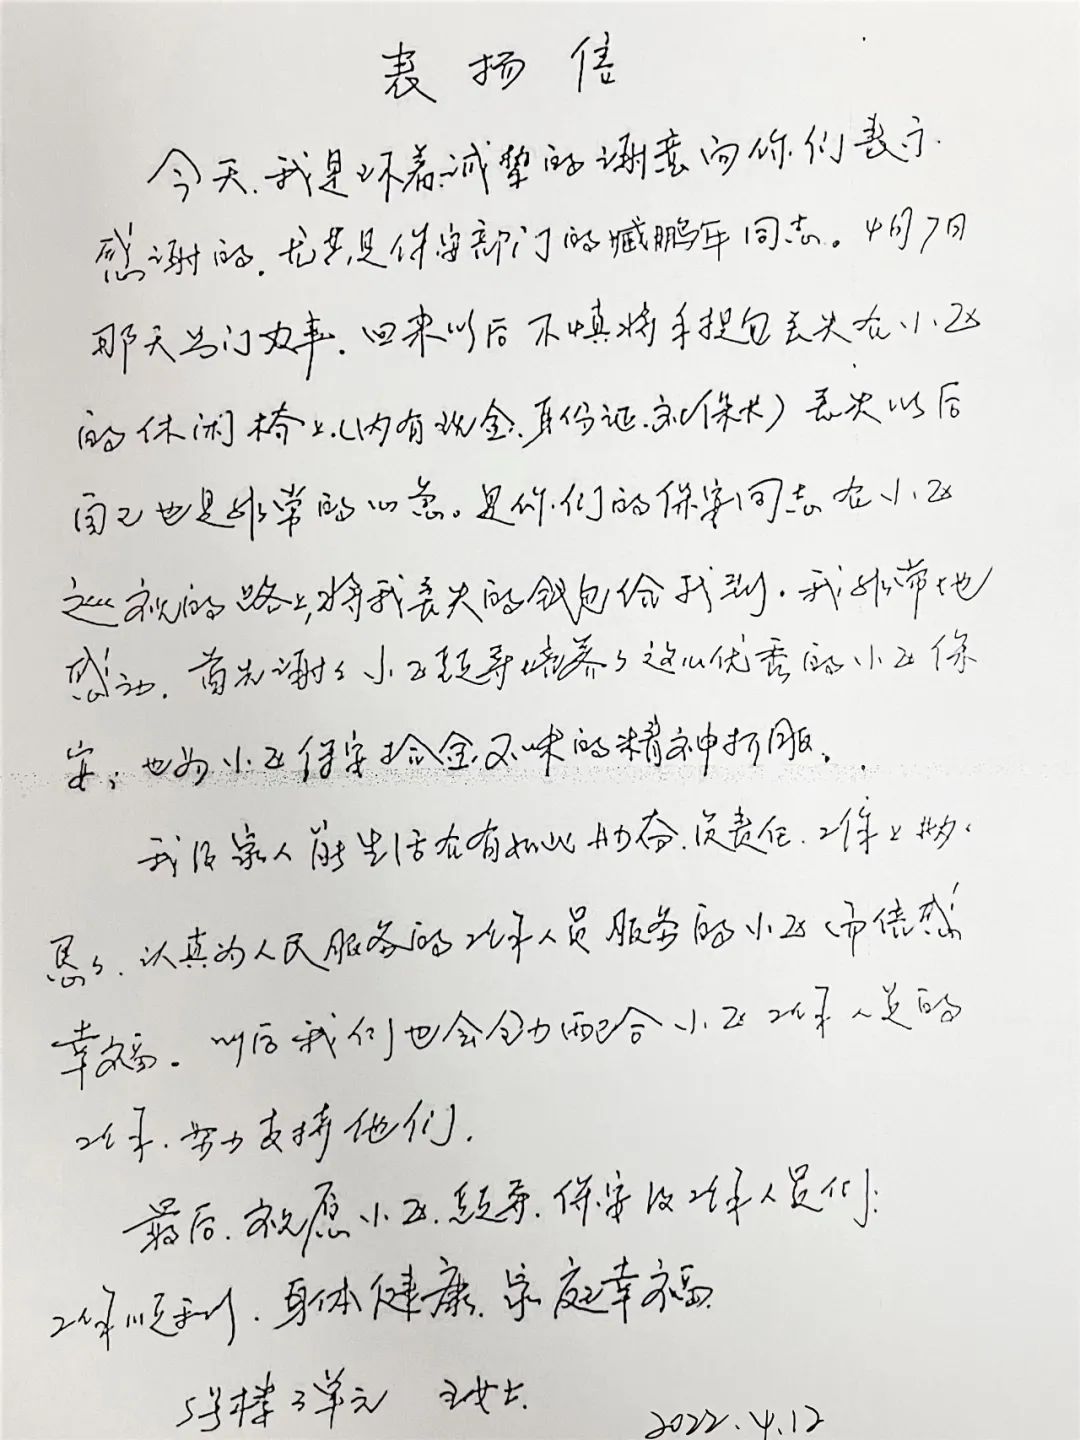 表扬信
今天.我是怀着诚挚的谢意向你们表示
感谢的.尤其是保安部门的臧鹏年同志。4月7日
那天出门办事.回来以后不慎将手提包丢失在小区
的休闲椅上.(内有现金.身份证.社保卡)丢失以后
自己也是非常的心急。是你们的保安同志在小区
巡视的路上,将我丢失的钱包给找到.我非常地
感动.首先谢谢小区领导培养了这么优秀的小区保
安,也为小区保安拾金不昧的精神折服..
我及家人能生活在有如此勤奋.负责任.工作上兢兢
恳恳.认真为人民服务的工作人员服务的小区而倍感
幸福。以后我们也会全力配合小区工作人员的
工作.努力支持他们.
最后.祝愿小区.领导.保安及工作人员们:
工作顺利.身体健康.家庭幸福.
5号楼3单元 王女士.
2022.4.12